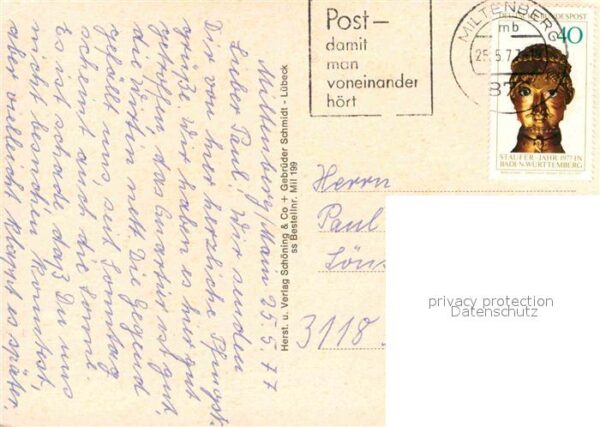 Miltenberg/Main 25.5.77
Lieber Paul! Wir senden
Dir von hier herzliche Pfingst-
grüße. Wir haben es hier gut
getroffen, das Quartier ist gut,
die Wirtin nett. Die Gegend
gefällt uns, seit Sonntag
scheint auch die Sonne.
Es ist schade daß Du uns
nicht besuchen konntest,
aber vielleicht klappt es später.
Herst. u. Verlag Schöning & Co + Gebrüder Schmidt - Lübeck
ss Bestellnr. Mil 199
Post –
damit
man
voneinander
hört
MILTENBERG
mb
25.5.77
87
DEUTSCHE BUNDESPOST
40
STAUFER-JAHR 1977 IN
BADEN-WÜRTTEMBERG
Herrn
Paul
Löns
3118
privacy protection
Datenschutz